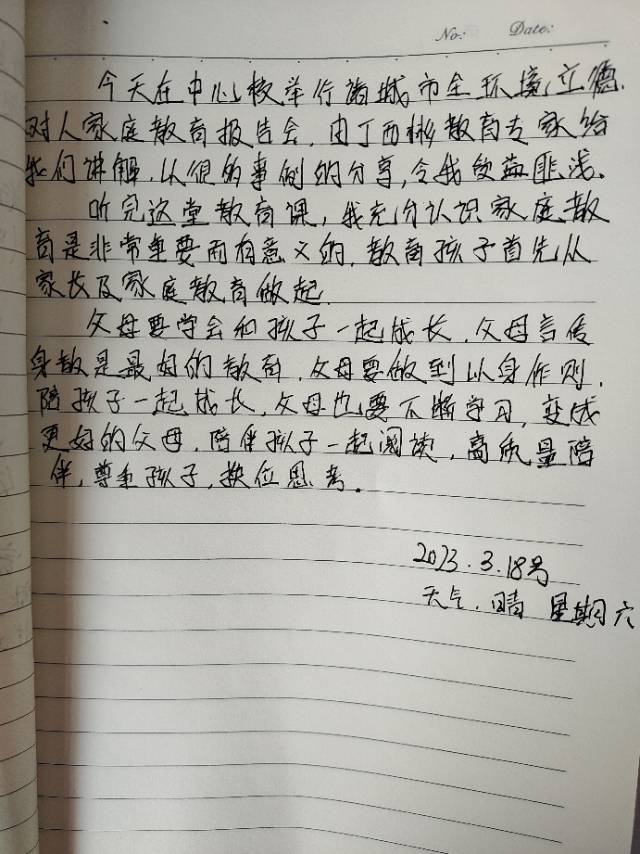 No: Date:
今天在中心校举行诸城市全环境立德
对人家庭教育报告会,由丁西彬教育专家给
我们讲解,从很多事例的分享,令我受益匪浅。
听完这堂教育课,我充分认识家庭教
育是非常重要而有意义的,教育孩子首先从
家长及家庭教育做起.
父母要学会和孩子一起成长,父母言传
身教是最好的教育,父母要做到以身作则,
陪孩子一起成长,父母也要不断学习,变成
更好的父母,陪伴孩子一起阅读,高质量陪
伴,尊重孩子,换位思考。
2023.3.18号
天气,晴 星期六